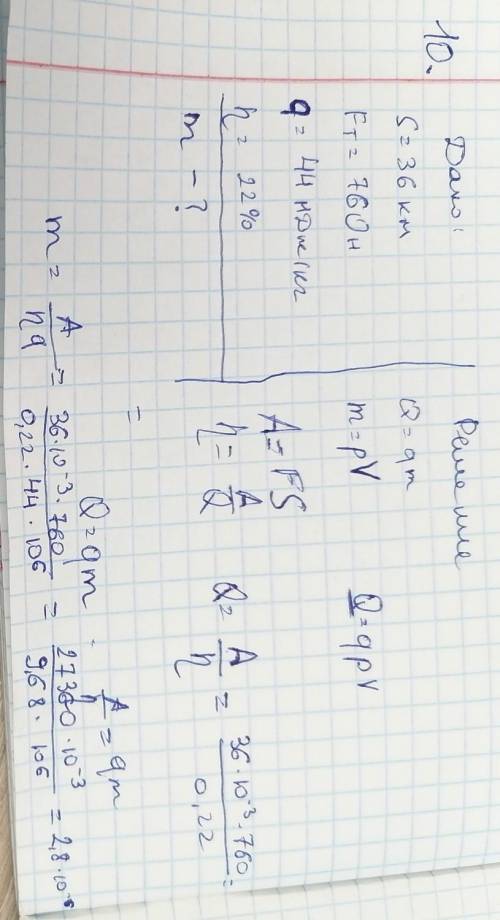 10.
Дано:
S = 36 км
Fт = 760 н
q = 44 мДж/кг
η = 22%
m - ?
Решение
Q = qm
m = ρV
Q = qρV
A = FS
η = A/Q
Q = A/η = 36·10⁻³·760/0,22 =
=
Q = qm. A/η = qm
m = A/ηq = 36·10⁻³·760/0,22·44·10⁶ = 27360·10⁻³/9,68·10⁶ = 2,8·10⁻⁶